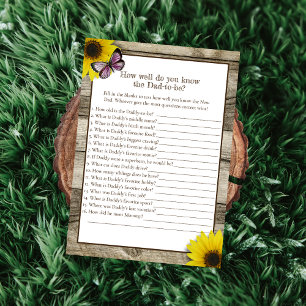 How well do you know
the Dad-to-be?
Fill in the blanks to see how well you know the New
Dad. Whoever gets the most questions correct wins!
1. How old is the Daddy-to-be?
2. What is Daddy's middle name?
3. What is Daddy's birth month?
4. What is Daddy's favorite food?
5. What is Daddy's biggest craving?
6. What is Daddy's favorite drink?
7. What is Daddy's favorite movie?
8. If Daddy were a superhero, he would be?
9. What car does Daddy drive?
10. How many siblings does he have?
11. What is Daddy's favorite hobby?
12. What is Daddy's favorite color?
13. What was Daddy's first job?
14. What is Daddy's favorite sport?
15. Where was Daddy's last vacation?
16. How did he meet Mommy?